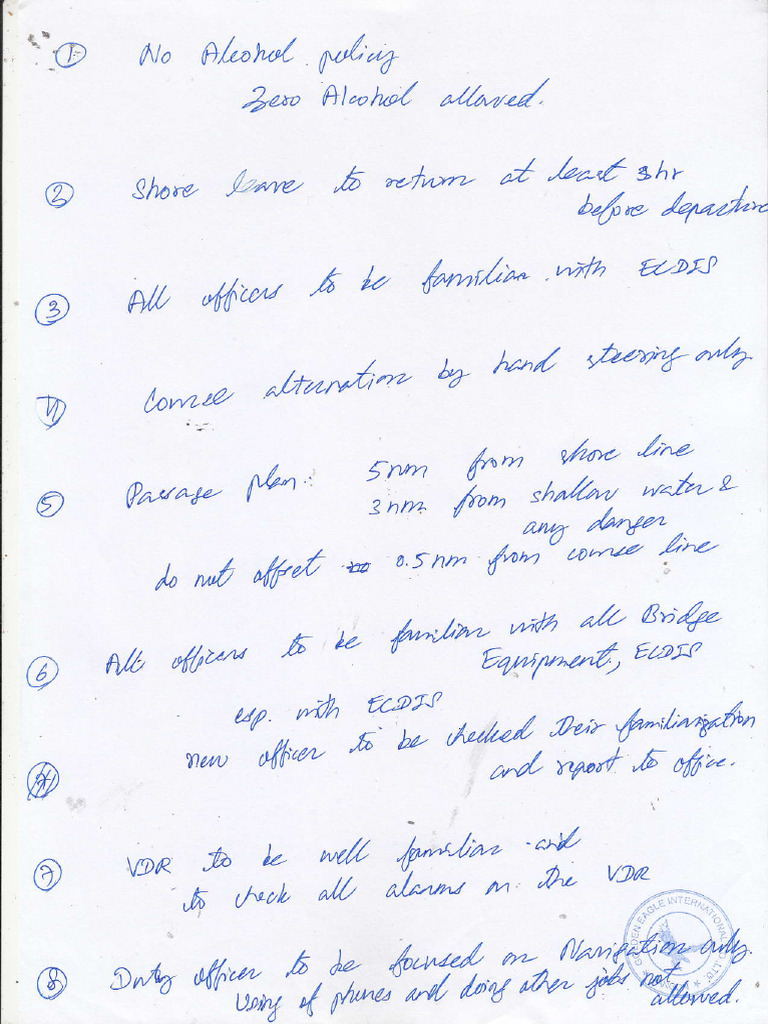 ① No Alcohol policy
Zero Alcohol allowed.
② Shore leave to return at least 3hr
before departure
③ All officers to be familiar with ECDIS
4 Course alternation by hand steering only
⑤ Passage plan: 5nm from shore line
3nm from shallow water &
any danger
do not offset 0.5nm from course line
⑥ All officers to be familiar with all Bridge
Equipment, ECDIS
esp. with ECDIS
new officer to be checked their familiarization
and report to office.
⑦ VDR to be well familiar and
to check all alarms on the VDR
⑧ Duty officer to be focused on Navigation only.
Using of phones and doing other jobs not
allowed.
GOLDEN EAGLE INTERNATIONAL